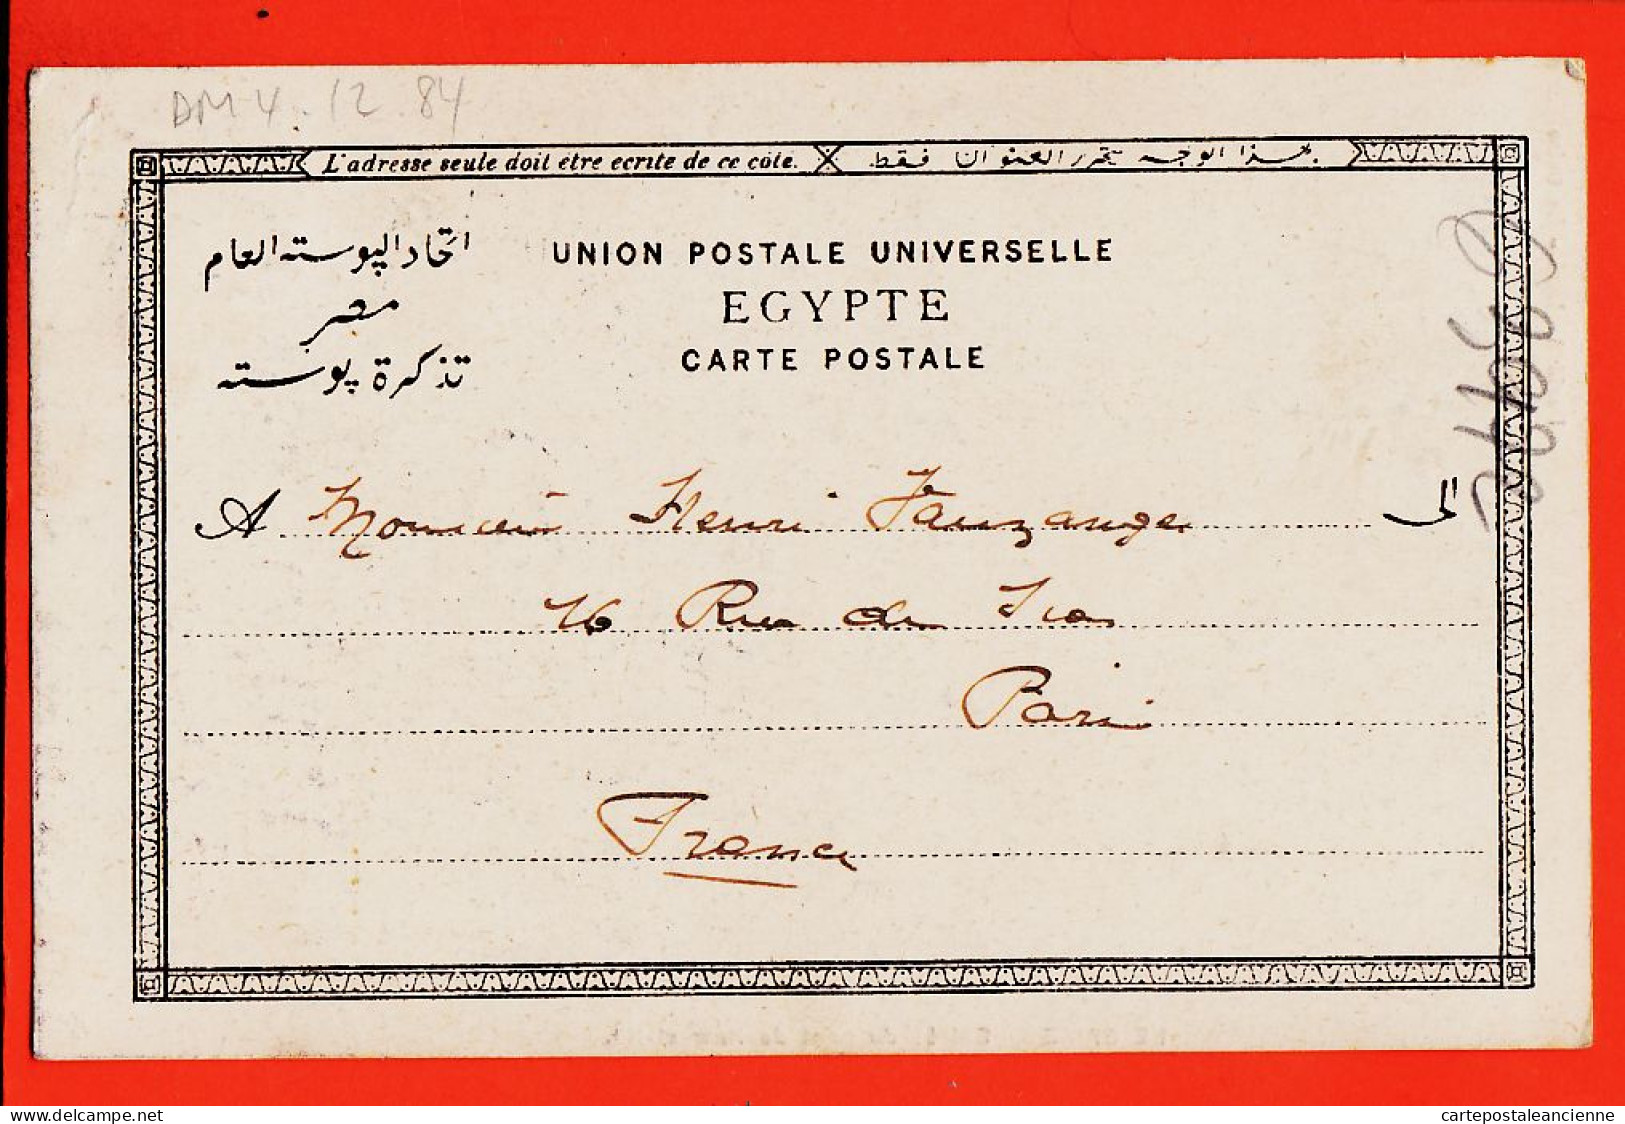 DM 4.12.84
L'adresse seule doit être écrite de ce côté.
هذا الوجه يتحرر العنوان فقط
اتحاد البوسته العام
مصر
تذكرة بوسته
UNION POSTALE UNIVERSELLE
EGYPTE
CARTE POSTALE
A Monsieur Henri الى
16 Rue de
Paris
France
delcampe.net
cartepostaleancienne